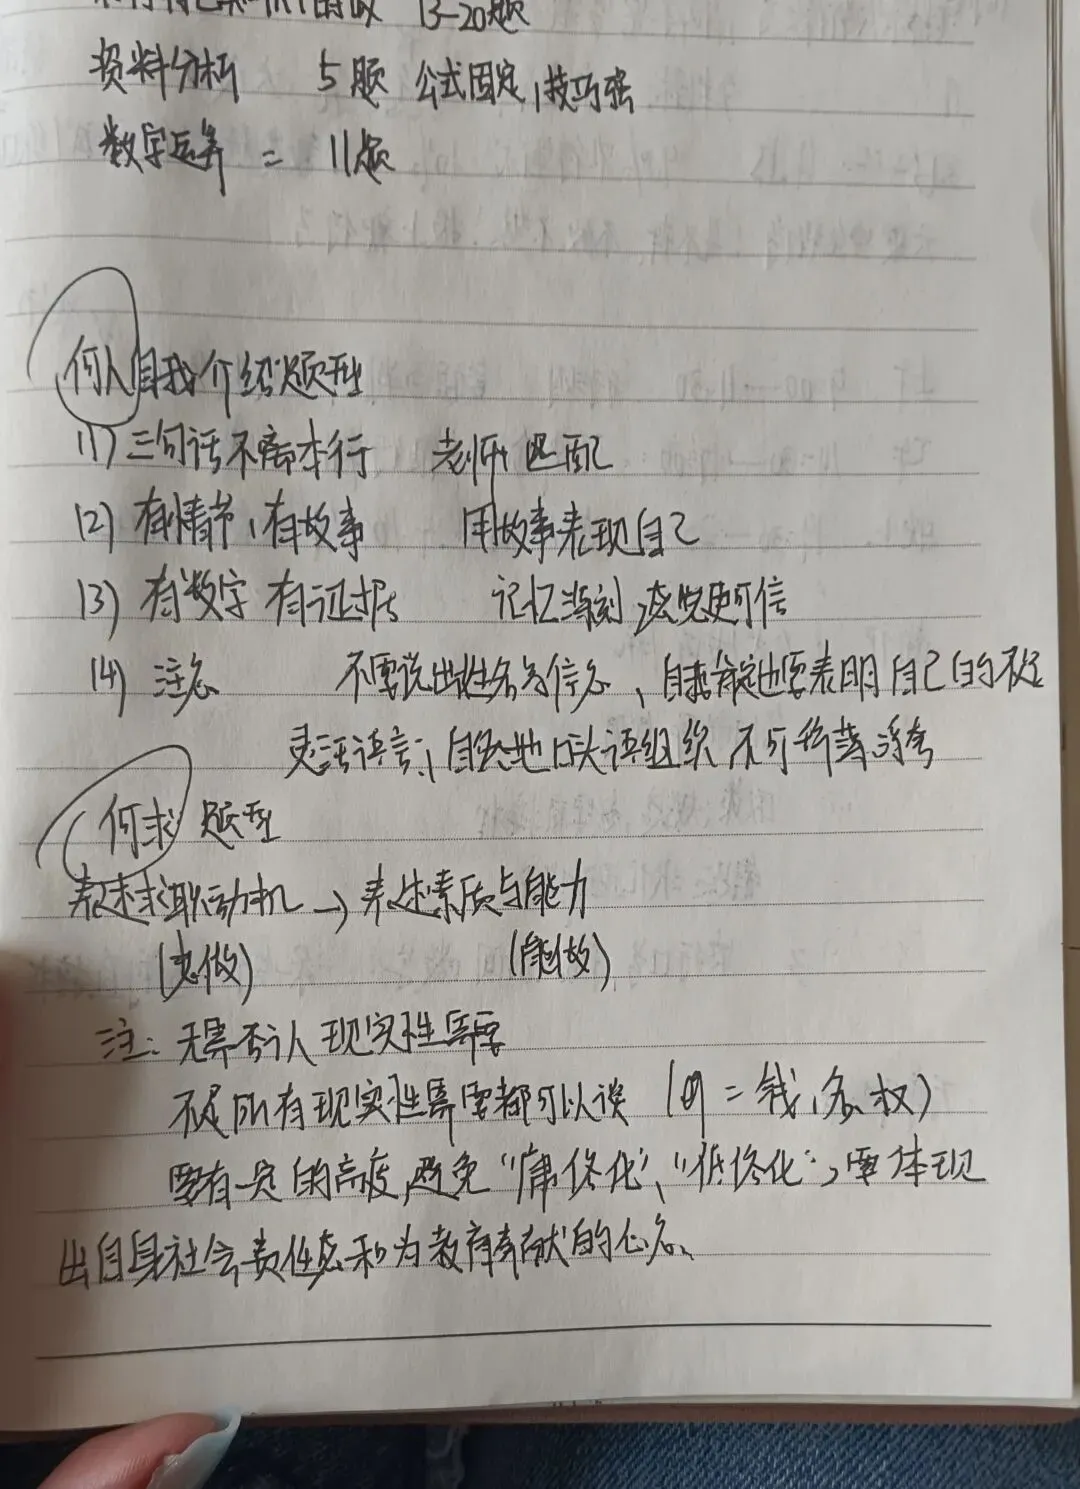 13-20题
资料分析 5题 公式固定，技巧强
数字运算 = 11题
何人自我介绍题型
(1) 三句话不离本行 老师匹配
(2) 有情节，有故事 用故事表现自己
(3) 有数字 有证据 记忆深刻，感觉更可信
(4) 注意 不要说出姓名等信息、自我 也要表明自己的不足
灵活语言，自然地口头语组织 不可称赞
何求 题型
表述求职动机 → 表述素质与能力
(想做) (能做)
注：无需否认现实性需要
不是所有现实性需要都可以谈 (例=钱、名、权)
要有一定的高度，避免“庸俗化”、“低俗化”，要体现
出自身社会责任感和为教育奉献的心态、